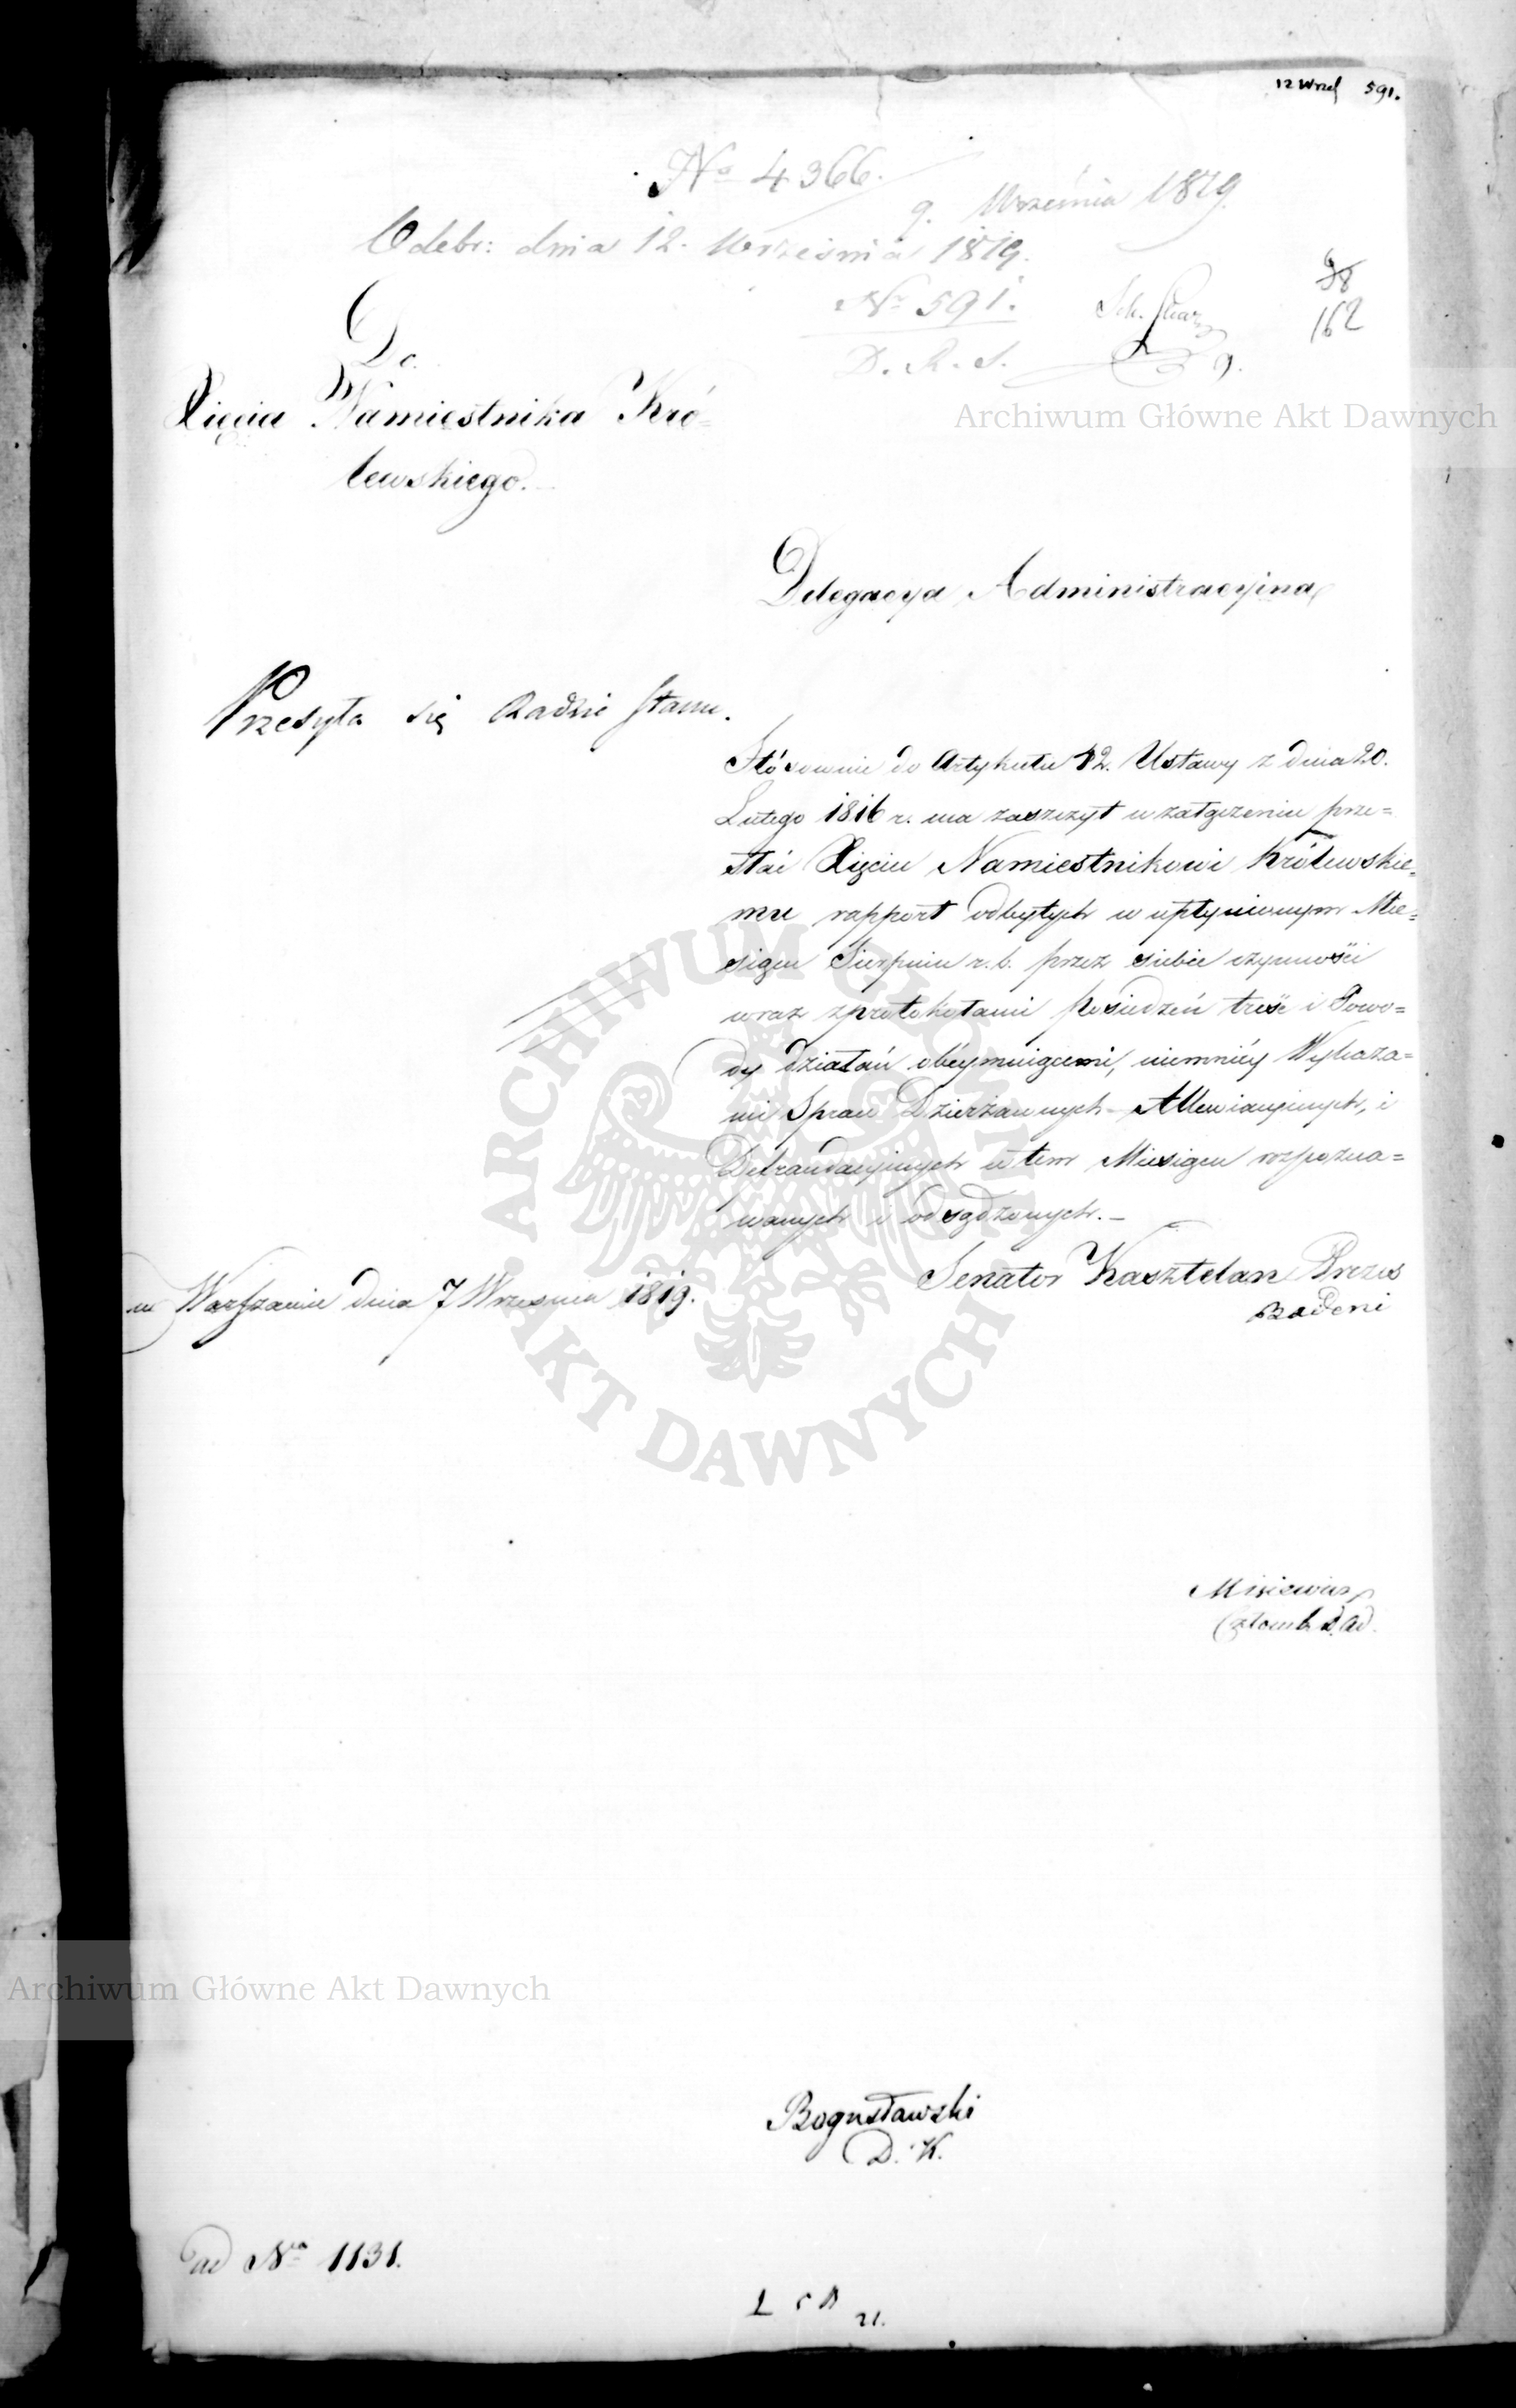 12 Wrześ 591.
No 4366.
9. Września 1819.
Odebr: dnia 12. Września 1819.
No 591.
D. R. S.
98
162
Do
Xięcia Namiestnika Kró=
lewskiego.
Archiwum Główne Akt Dawnych
Delegacya Administracyina
Przesyła się Radzie Stanu.
Stósownie do Artykułu 12. Ustawy z dnia 20.
Lutego 1816 r. ma zaszczyt w załączeniu prze=
słać Xięciu Namiestnikowi Królewskie=
mu rapport odbytych w upłynionym Mie=
siącu Sierpniu r. b. przez siebie czynności
wraz z protokołami Posiedzeń treść i Powo=
dy działań obeymuiącemi, niemniéy Wykaza=
mi Spraw Dzierżawnych Allewiacyinych, i
Defraudacyinych w tem Miesiącu rozpozna=
wanych i odsądzonych.
w Warszawie dnia 7 Września 1819.
Senator Kasztelan Prezes
Badeni
ARCHIWUM GŁÓWNE AKT DAWNYCH
Misiewicz
Członek D. Ad.
Archiwum Główne Akt Dawnych
Bogusławski
D. K.
ad No 1131.